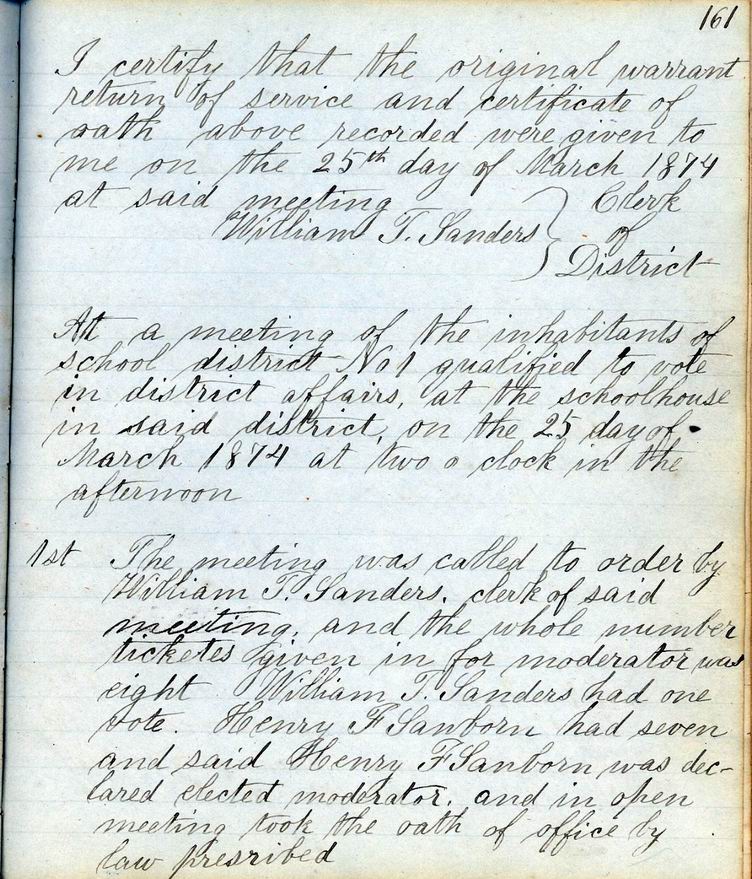 161
I certify that the original warrant
return of service and certificate of
oath above recorded were given to
me on the 25th day of March 1874
at said meeting
William T. Sanders } Clerk
of
District
At a meeting of the inhabitants of
school district No 1 qualified to vote
in district affairs, at the schoolhouse
in said district, on the 25 day of
March 1874 at two o clock in the
afternoon
1st The meeting was called to order by
William T. Sanders. clerk of said
meeting, and the whole number
ticketes given in for moderator was
eight William T. Sanders had one
vote. Henry F Sanborn had seven
and said Henry F Sanborn was dec-
lared elected moderator. and in open
meeting took the oath of office by
law presribed